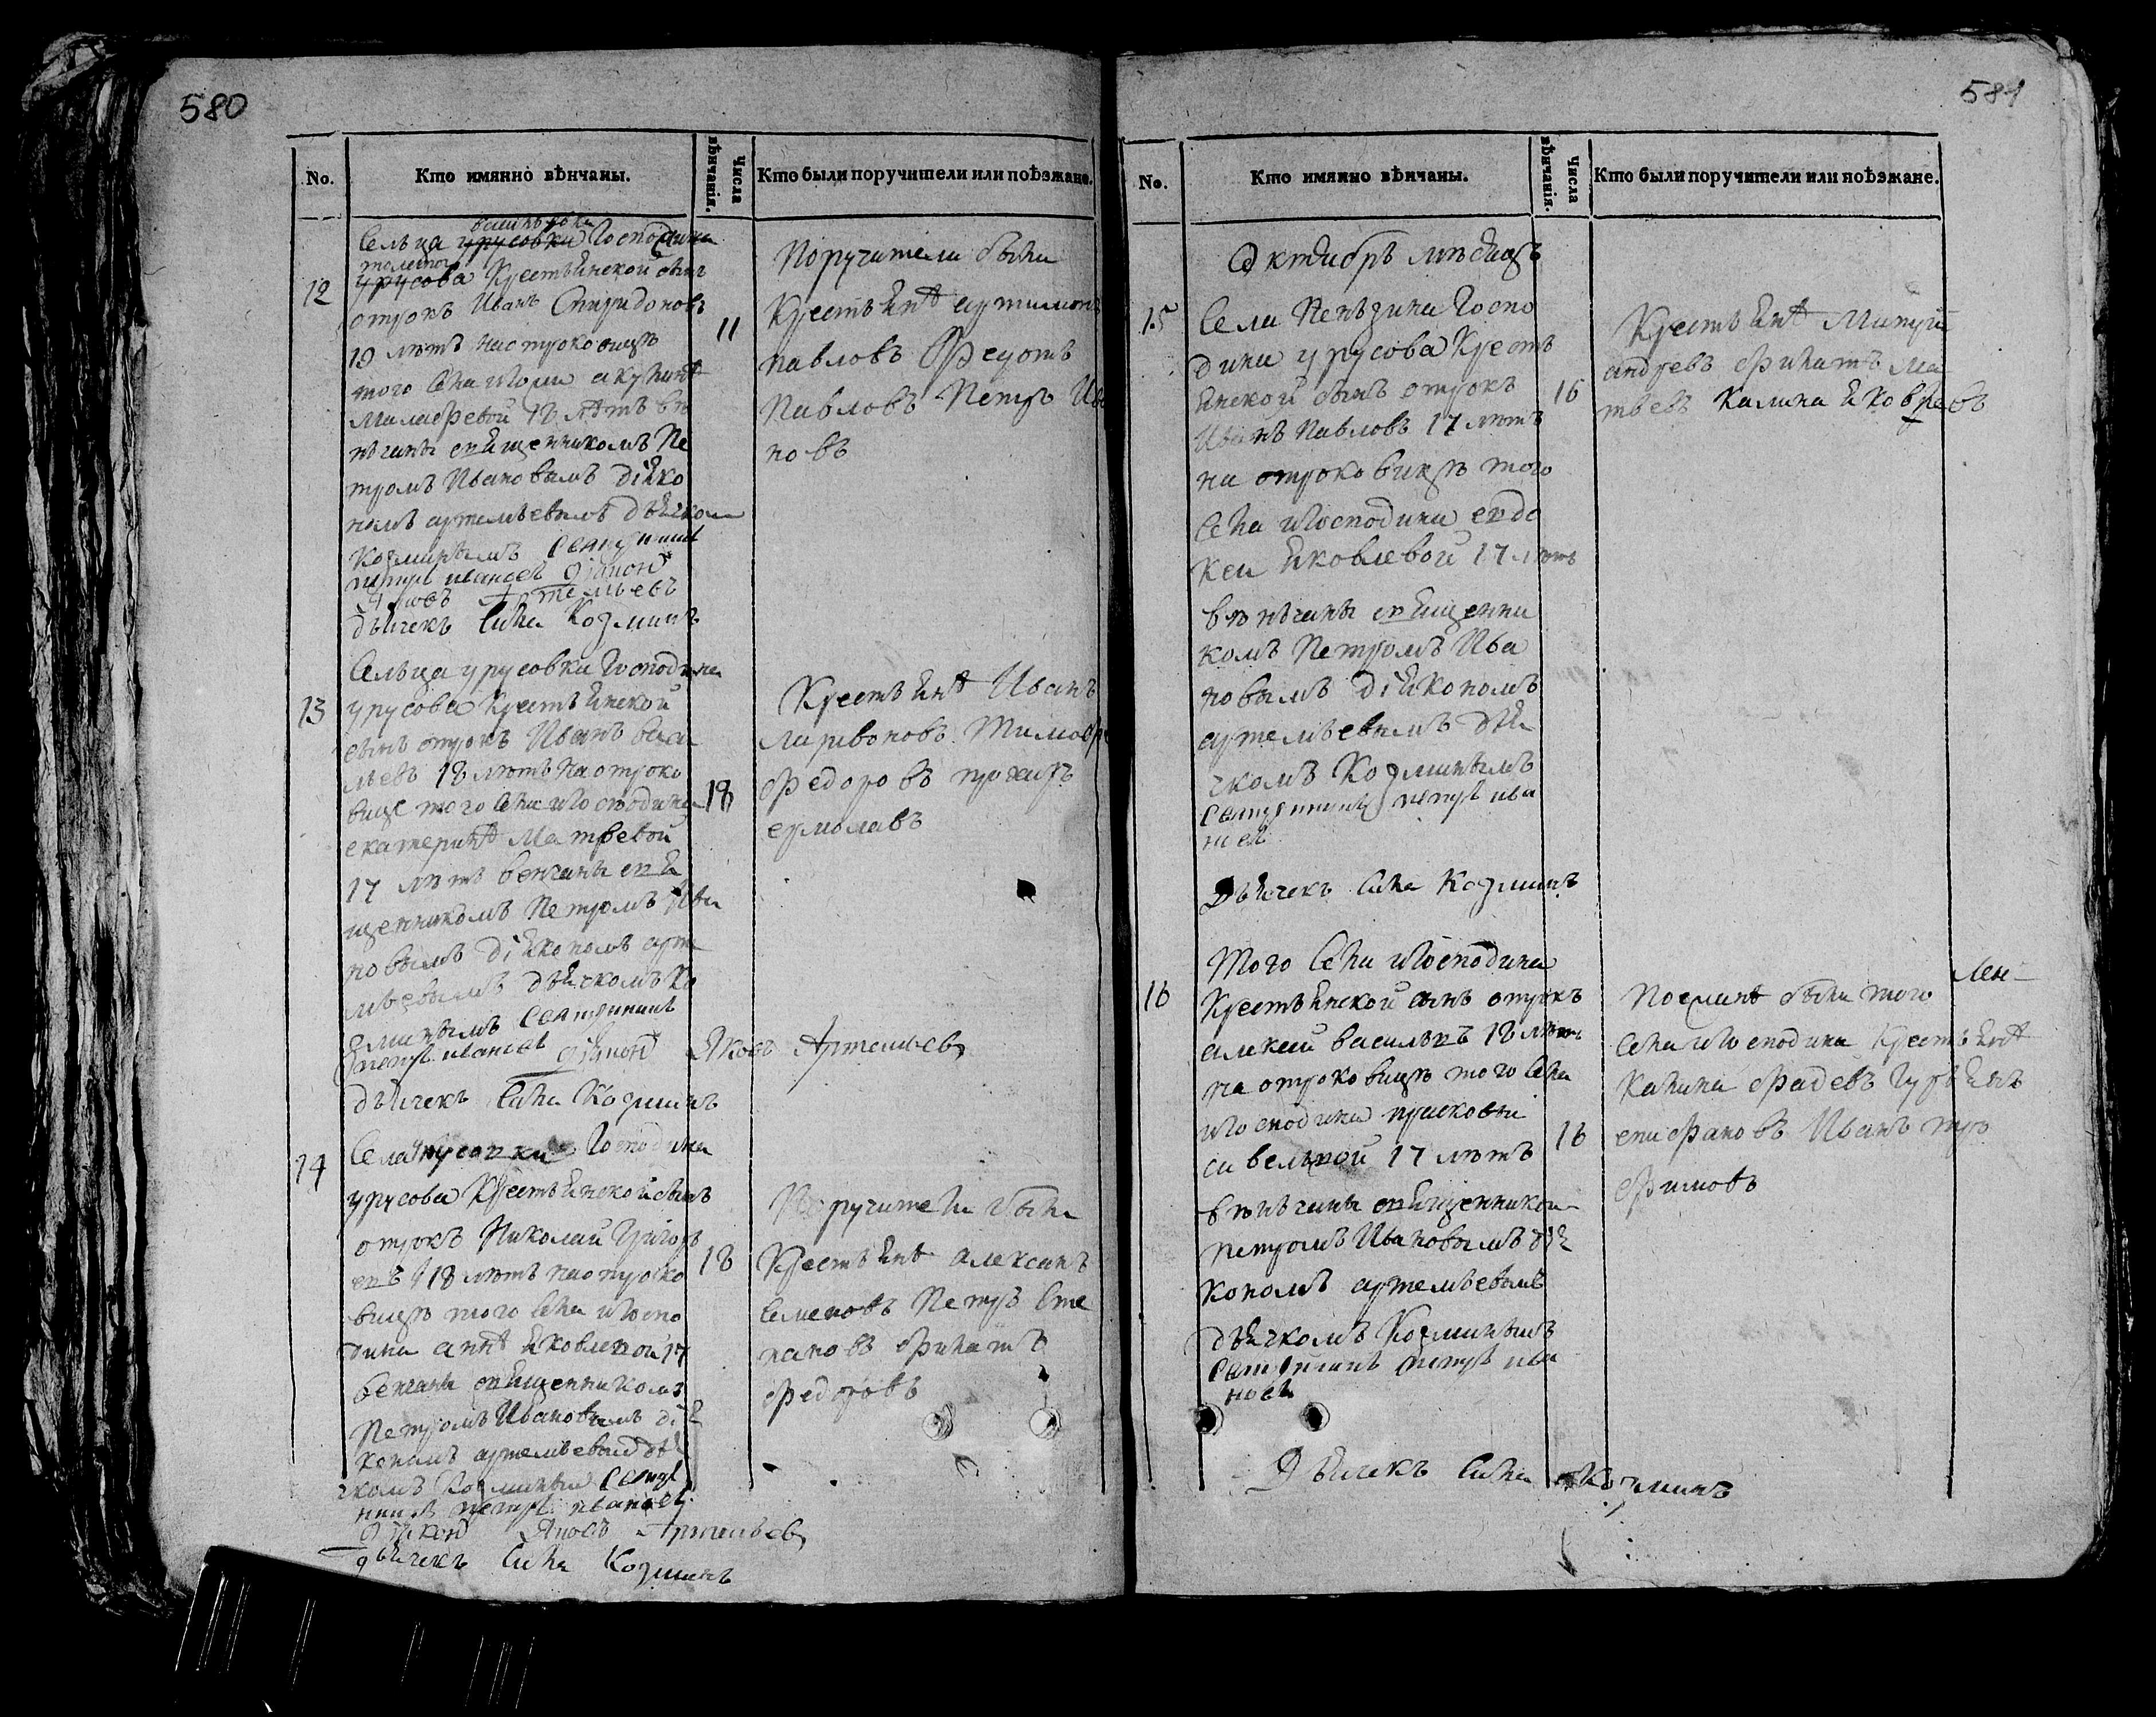 580
No.
Кто имянно вѣнчаны.
Числа вѣнчанія.
Кто были поручители или поѣзжане.
12
Сельца урусовки Господина
урусова Крестьянской сынъ
отрокъ Иванъ Спиридоновъ
19 лѣтъ на отроковицѣ
того села и Господина
18 лѣтъ вѣ
нчаны священникомъ Пе
тромъ Ивановымъ діяко
номъ артемьевымъ дьячком
Козминымъ Священникъ
петръ ивановъ діяконъ
Яковъ Артемьевъ
дьячекъ Сила Козминъ
11
Поручители были
Крестьянѣ артимонъ
павловъ Федотъ
Павловъ Петръ Ива
новъ
13
Сельца урусовки Господина
урусова Крестьянской
сынъ отрокъ Иванъ васи
льевъ 18 лѣтъ на отроко
вице того села и Господина
екатеринѣ Матвевой
17 лѣтъ венчаны свя
щенникомъ Петромъ Ива
новымъ діякономъ арте
мьевымъ дьячкомъ Ко
зминымъ Священникъ
петръ ивановъ діяконъ Яковъ Артемьевъ
дьячекъ Сила Козминъ
18
Крестьянѣ Иванъ
ларивоновъ Тимофе
федоровъ прохиръ
ермолавъ
14
Села Урусовки Господина
урусова Крестьянской сынъ
отрокъ Николай Григорь
евъ 18 лѣтъ на отроко
вицѣ того села и Госпо
дина аннѣ яковлевой 17
венчаны священникомъ
Петромъ Ивановымъ дія
кономъ артемьевымъ дья
чкомъ Козминым Священ
никъ петръ ивановъ
Діяконъ Яковъ Артемьевъ
дьячекъ Сила Козминъ
18
Поручители были
Крестьянѣ алексанъ
Семеновъ Петръ Сте
пановъ филатъ
федоровъ
581
No.
Кто имянно вѣнчаны.
Числа вѣнчанія.
Кто были поручители или поѣзжане.
Октябрь мѣсяцъ
15
Села Госпо
дина урусова Кресть
янской сынъ отрокъ
Иванъ Павловъ 17 лѣтъ
на отроковицѣ того
села и Господина евдо
кеи яковлевой 17 лѣтъ
вѣнчаны священни
комъ Петромъ Ива
новымъ діякономъ
артемьевымъ дья
чкомъ Козминымъ
Священникъ петръ ива
новъ
Дьячекъ Сила Козминъ
16
Крестьянѣ
андревъ филатъ Ма
твевъ Калина яковлевъ
16
Того села и Господина
Крестьянской сынъ отрокъ
алексей васильевъ 18 лѣтъ
на отроковицѣ того села
и Господина прасковьи
савельевой 17 лѣтъ
вѣнчаны священником
петромъ Ивановымъ дія
кономъ артемьевымъ
дьячкомъ Козминымъ
Священникъ петръ ива
новъ
Дьячекъ Сила Козминъ
16
были того
села и Господина Крестьянѣ
Калина фадевъ Гурьянъ
епифановъ Иванъ тро
фимовъ